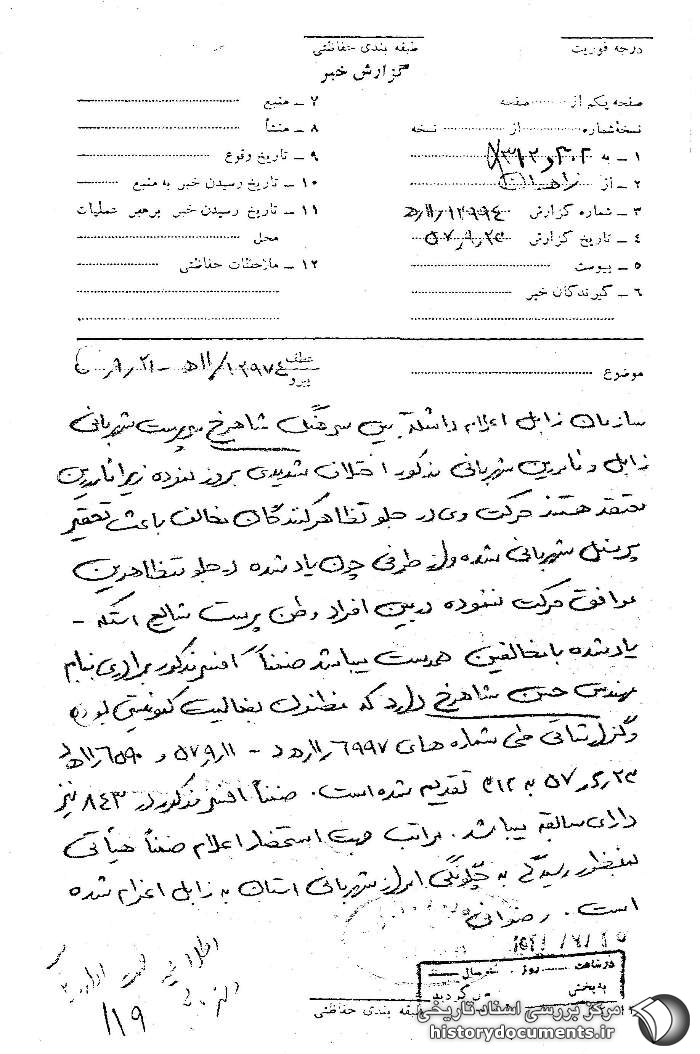 درجه فوریت
طبقه بندی حفاظتی
گزارش خبر
صفحه یکم از صفحه
نسخه شماره از نسخه
۱ - به ۳۱۲ و ۳۰۲
۲ - از زاهدان
۳ - شماره گزارش ۱۲۹۹۴/۱۱ه‍
۴ - تاریخ گزارش ۵۷٫۹٫۲۳
۵ - پیوست
۶ - گیرندگان خبر
۷ - منبع
۸ - منشأ
۹ - تاریخ وقوع
۱۰ - تاریخ رسیدن خبر به منبع
۱۱ - تاریخ رسیدن خبر برهبر عملیات
محل
۱۲ - ملاحظات حفاظتی
موضوع
عطف
پیرو ۱۲۹۷۴/۱۱ه‍ - ۲۱٫۹٫
سازمان زابل اعلام داشته بین سرهنگ شاهرخ سرپرست شهربانی
زابل و مامورین شهربانی مذکور اختلاف شدیدی بروز نموده زیرا مامورین
معتقد هستند حرکت وی در جلو تظاهرکنندگان مخالف باعث تحقیر
پرسنل شهربانی شده و از طرفی چون یاد شده در جلو متظاهرین
موافق حرکت ننموده در بین افراد وطن پرست شایع استکه -
یاد شده با مخالفین همدست میباشد ضمناً افسر مذکور برادری بنام
مهندس حسن شاهرخ دارد که مظنون بفعالیت کمونیستی بوده
و گزارشاتی طی شماره های ۶۹۹۷/۱۱ه‍ - ۵۷٫۹٫۱۱ و ۶۵۹۰/۱۱ه‍
۲۳٫۲٫۵۷ به ۳۱۲ تقدیم شده است. ضمناً افسر مذکور در ۸۴۳ نیز
دارای سابقه میباشد. مراتب جهت استحضار اعلام ضمناً هیأتی
بمنظور رسیدگی به چگونگی امر از شهربانی استان به زابل اعزام شده
است. رضوانی
اطلاعاتی
۱۱۹
در ساعت روز سال
به بخش
گردید
طبقه بندی حفاظتی
مرکز بررسی اسناد تاریخی
historydocuments.ir